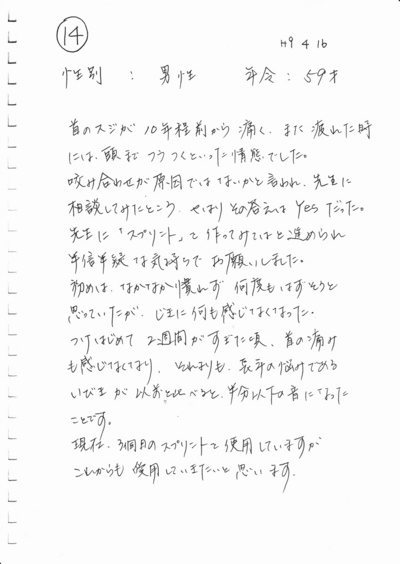 14
H9 4 16
性別 : 男性 年令 : 59才
首のスジが 10年程前から 痛く、また 疲れた時
には、頭まで つうつくといった 情態でした。
咬み合わせが 原因ではないかと 言われ、先生に
相談してみたところ、やはり その答えは Yes だった。
先生に「スプリント」を作ってみてはと 進められ
半信半疑な気持ちで お願いしました。
初めは、なかなか慣れず 何度もはずそうと
思っていたが、じきに 何も感じなくなった。
つけはじめて 2週間がすぎた頃、首の痛み
も感じなくなり、それよりも、長年の悩みである
いびきが 以前と比べると、半分以下の音になった
ことです。
現在、3個目のスプリントを使用していますが
これからも 使用していきたいと 思います。